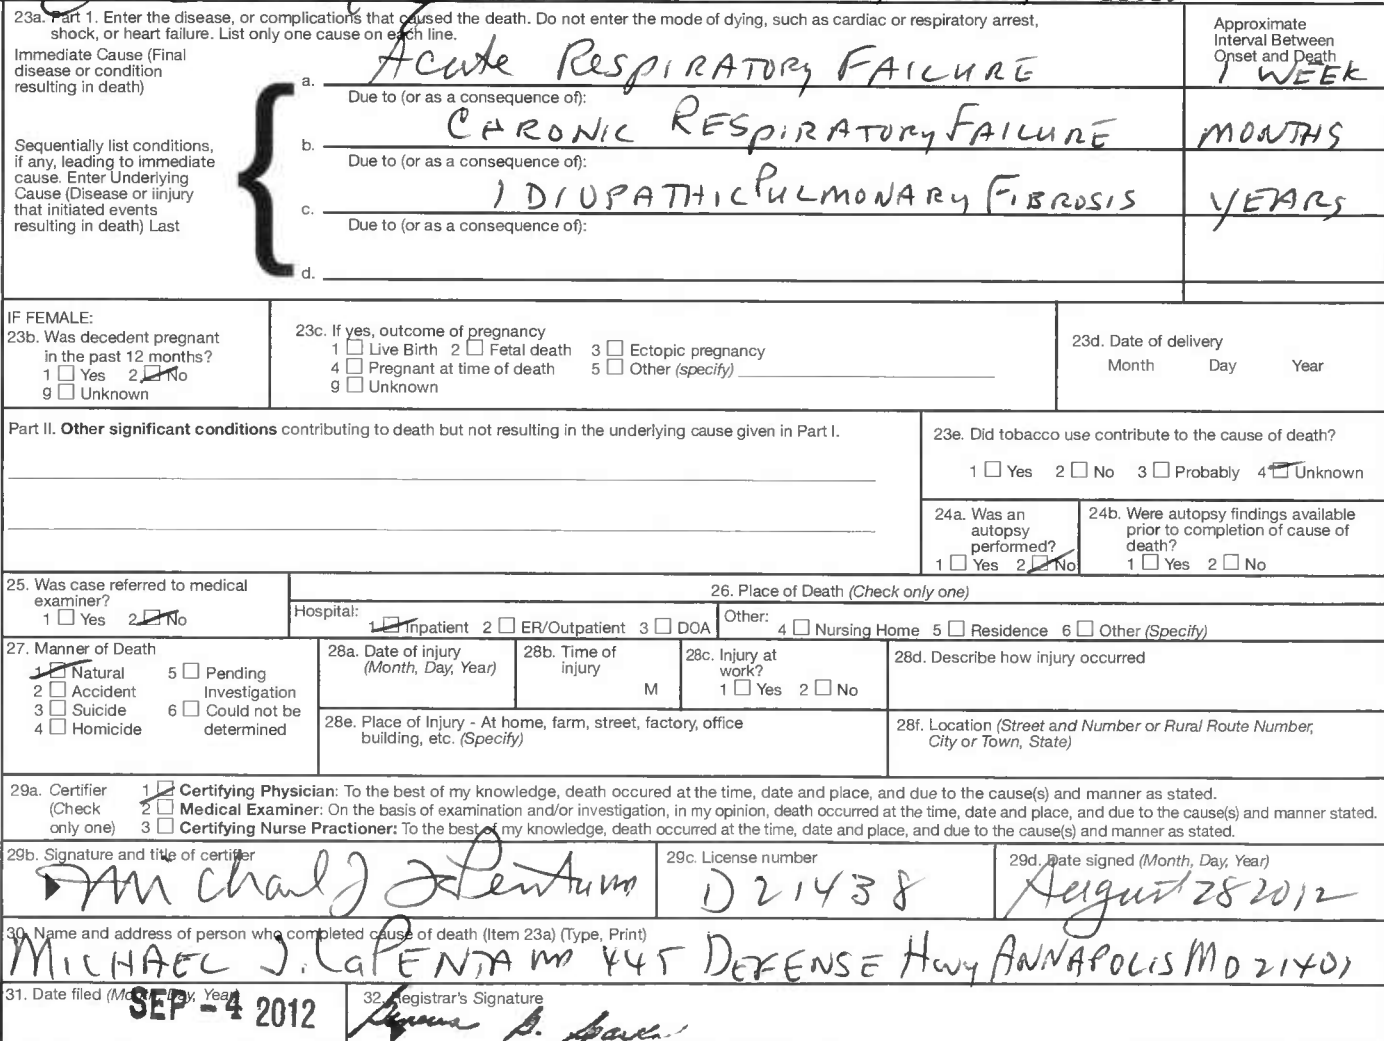 23a. Part 1. Enter the disease, or complications that caused the death. Do not enter the mode of dying, such as cardiac or respiratory arrest,
shock, or heart failure. List only one cause on each line.
Approximate
Interval Between
Onset and Death
Immediate Cause (Final
disease or condition
resulting in death)
a. Acute RESPIRATORY FAILURE
1 WEEK
Due to (or as a consequence of):
Sequentially list conditions,
if any, leading to immediate
cause. Enter Underlying
Cause (Disease or iinjury
that initiated events
resulting in death) Last
b. CHRONIC RESPIRATORY FAILURE
MONTHS
Due to (or as a consequence of):
c. IDIOPATHIC PULMONARY FIBROSIS
YEARS
Due to (or as a consequence of):
d.
IF FEMALE:
23b. Was decedent pregnant
in the past 12 months?
1 Yes 2 No
9 Unknown
23c. If yes, outcome of pregnancy
1 Live Birth 2 Fetal death 3 Ectopic pregnancy
4 Pregnant at time of death 5 Other (specify)
9 Unknown
23d. Date of delivery
Month Day Year
Part II. Other significant conditions contributing to death but not resulting in the underlying cause given in Part I.
23e. Did tobacco use contribute to the cause of death?
1 Yes 2 No 3 Probably 4 Unknown
24a. Was an
autopsy
performed?
1 Yes 2 No
24b. Were autopsy findings available
prior to completion of cause of
death?
1 Yes 2 No
25. Was case referred to medical
examiner?
1 Yes 2 No
26. Place of Death (Check only one)
Hospital: 1 Inpatient 2 ER/Outpatient 3 DOA
Other: 4 Nursing Home 5 Residence 6 Other (Specify)
27. Manner of Death
1 Natural 5 Pending
2 Accident Investigation
3 Suicide 6 Could not be
4 Homicide determined
28a. Date of injury
(Month, Day, Year)
28b. Time of
injury
M
28c. Injury at
work?
1 Yes 2 No
28d. Describe how injury occurred
28e. Place of Injury - At home, farm, street, factory, office
building, etc. (Specify)
28f. Location (Street and Number or Rural Route Number,
City or Town, State)
29a. Certifier
(Check
only one)
1 Certifying Physician: To the best of my knowledge, death occured at the time, date and place, and due to the cause(s) and manner as stated.
2 Medical Examiner: On the basis of examination and/or investigation, in my opinion, death occurred at the time, date and place, and due to the cause(s) and manner stated.
3 Certifying Nurse Practioner: To the best of my knowledge, death occurred at the time, date and place, and due to the cause(s) and manner as stated.
29b. Signature and title of certifier
Michael J
29c. License number
D21438
29d. Date signed (Month, Day, Year)
August 28 2012
30. Name and address of person who completed cause of death (Item 23a) (Type, Print)
MICHAEL J. LaPENTA MD 445 DEFENSE Hwy ANNAPOLIS MD 21401
31. Date filed (Month, Day, Year)
SEP - 4 2012
32. Registrar's Signature